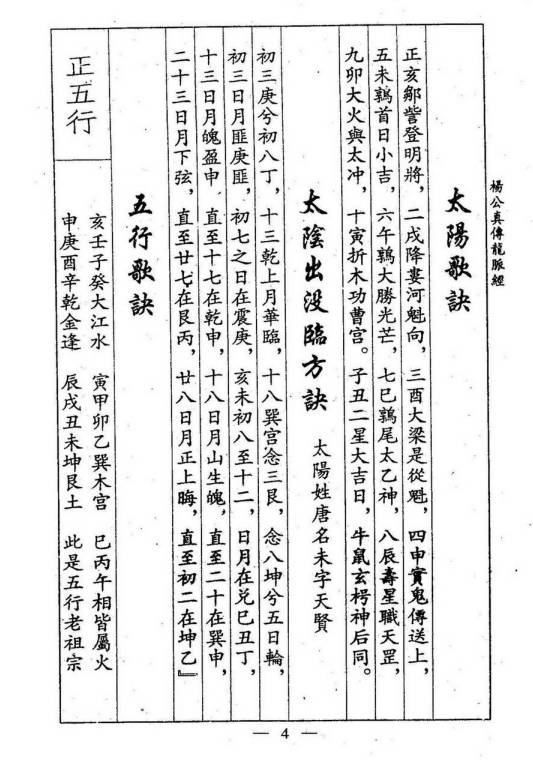 楊公真傳龍脈經
太陽歌訣
正亥鄒訾登明將，二戌降婁河魁向，三酉大梁是從魁，四申實鬼傳送上，
五未鶉首日小吉，六午鶉大勝光芒，七巳鶉尾太乙神，八辰壽星職天罡，
九卯大火與太冲，十寅折木功曹宫。子丑二星大吉日，牛鼠玄枵神后同。
太陰出没臨方訣 太陽姓唐名未字天賢
初三庚兮初八丁，十三乾上月華臨，十八巽宫念三艮，念八坤兮五日輪，
初三日月匪庚匪，初七之日在震庚，亥未初八至十二，日月在兑巳丑丁，
十三日月魄盈申 直至十七在乾申，十八日月山生魄，直至二十在巽申，
二十三日月下弦，直至廿七在艮丙，廿八日月正上晦，直至初二在坤乙』
五行歌訣
正五行
亥壬子癸大江水 寅甲卯乙巽木宫 巳丙午相皆屬火
申庚酉辛乾金逢 辰戌丑未坤艮土 此是五行老祖宗
— 4 —